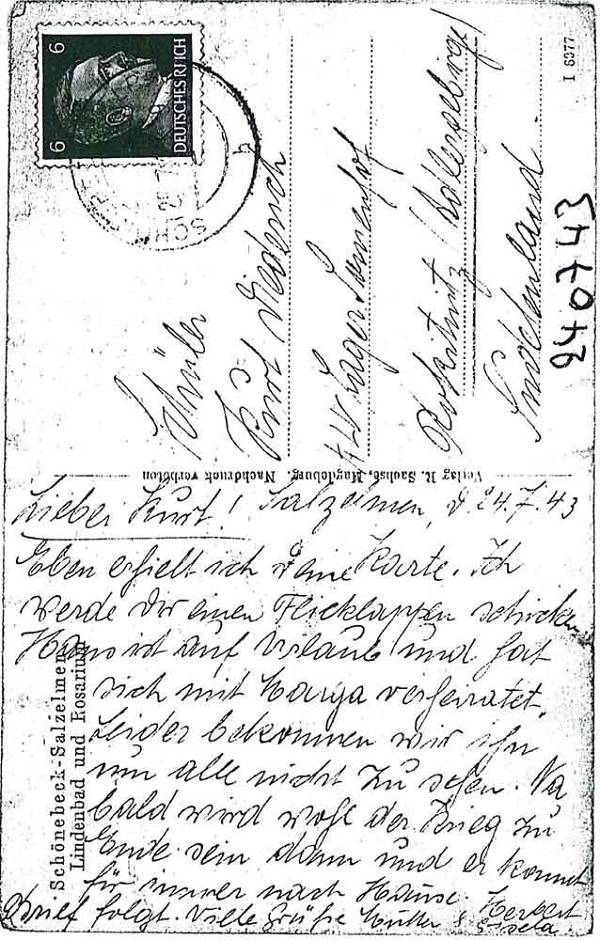 6
6
DEUTSCHES REICH
I 6077
240743
Schüler
Kurt Diederich
KLV Lager Sonnenhof
Rokitnitz / Adlergebirge /
Sudetenland.
Verlag R. Sachse, Magdeburg. Nachdruck verboten
Schönebeck-Salzelmen
Lindenbad und Rosarium
Salzelmen, d 24.7.43
Lieber Kurt!
Eben erhielt ich deine Karte. Ich
werde dir einen Flicklappen schicken
Hans ist auf Urlaub und hat
sich mit Marga verheiratet.
Leider bekommen wir ihn
nun alle nicht zu sehen. Na
bald wird wohl der Krieg zu
Ende sein dann und er kommt
für immer nach Hause.
Brief folgt. Viele Grüße Mutti & Herbert
Gisela.